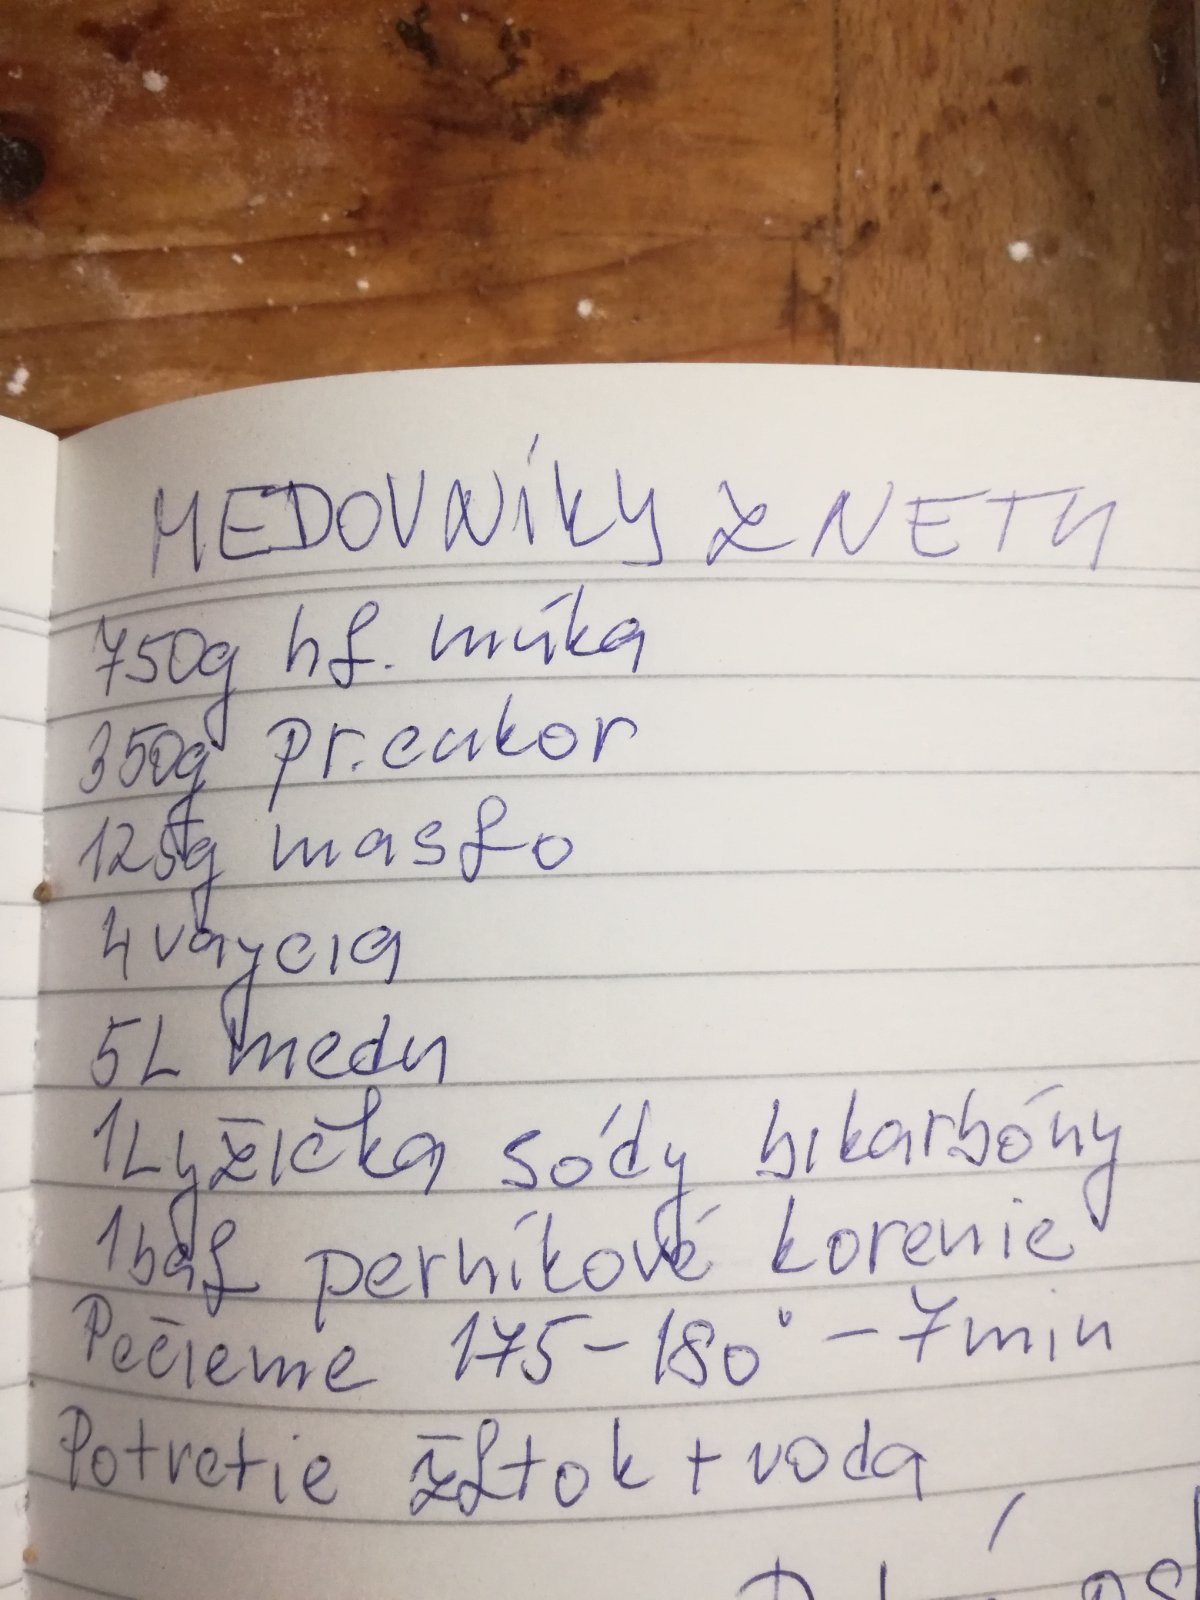 MEDOVNÍKY Z NETU
750g hl. múka
350g pr. cukor
125g maslo
4 vaycia
5L medu
1Lyžička sódy bikarbóny
1bal perníkové korenie
Pečieme 175-180° - 7min
Potretie žltok + voda